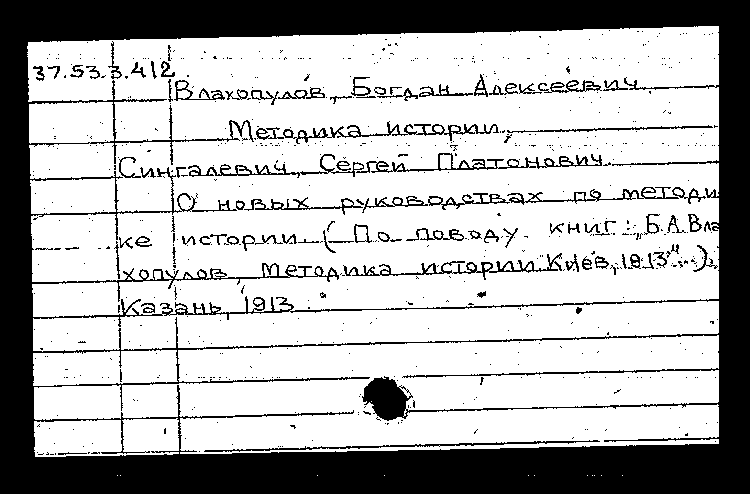 37.53.3.412
Влахопулов, Богдан Алексеевич.
Методика истории,
Сингалевич, Сергей Платонович.
О новых руководствах по методи
ке истории. (По поводу книг: „Б.А. Вла
хопулов, Методика истории. Киев, 1913"...).
Казань, 1913